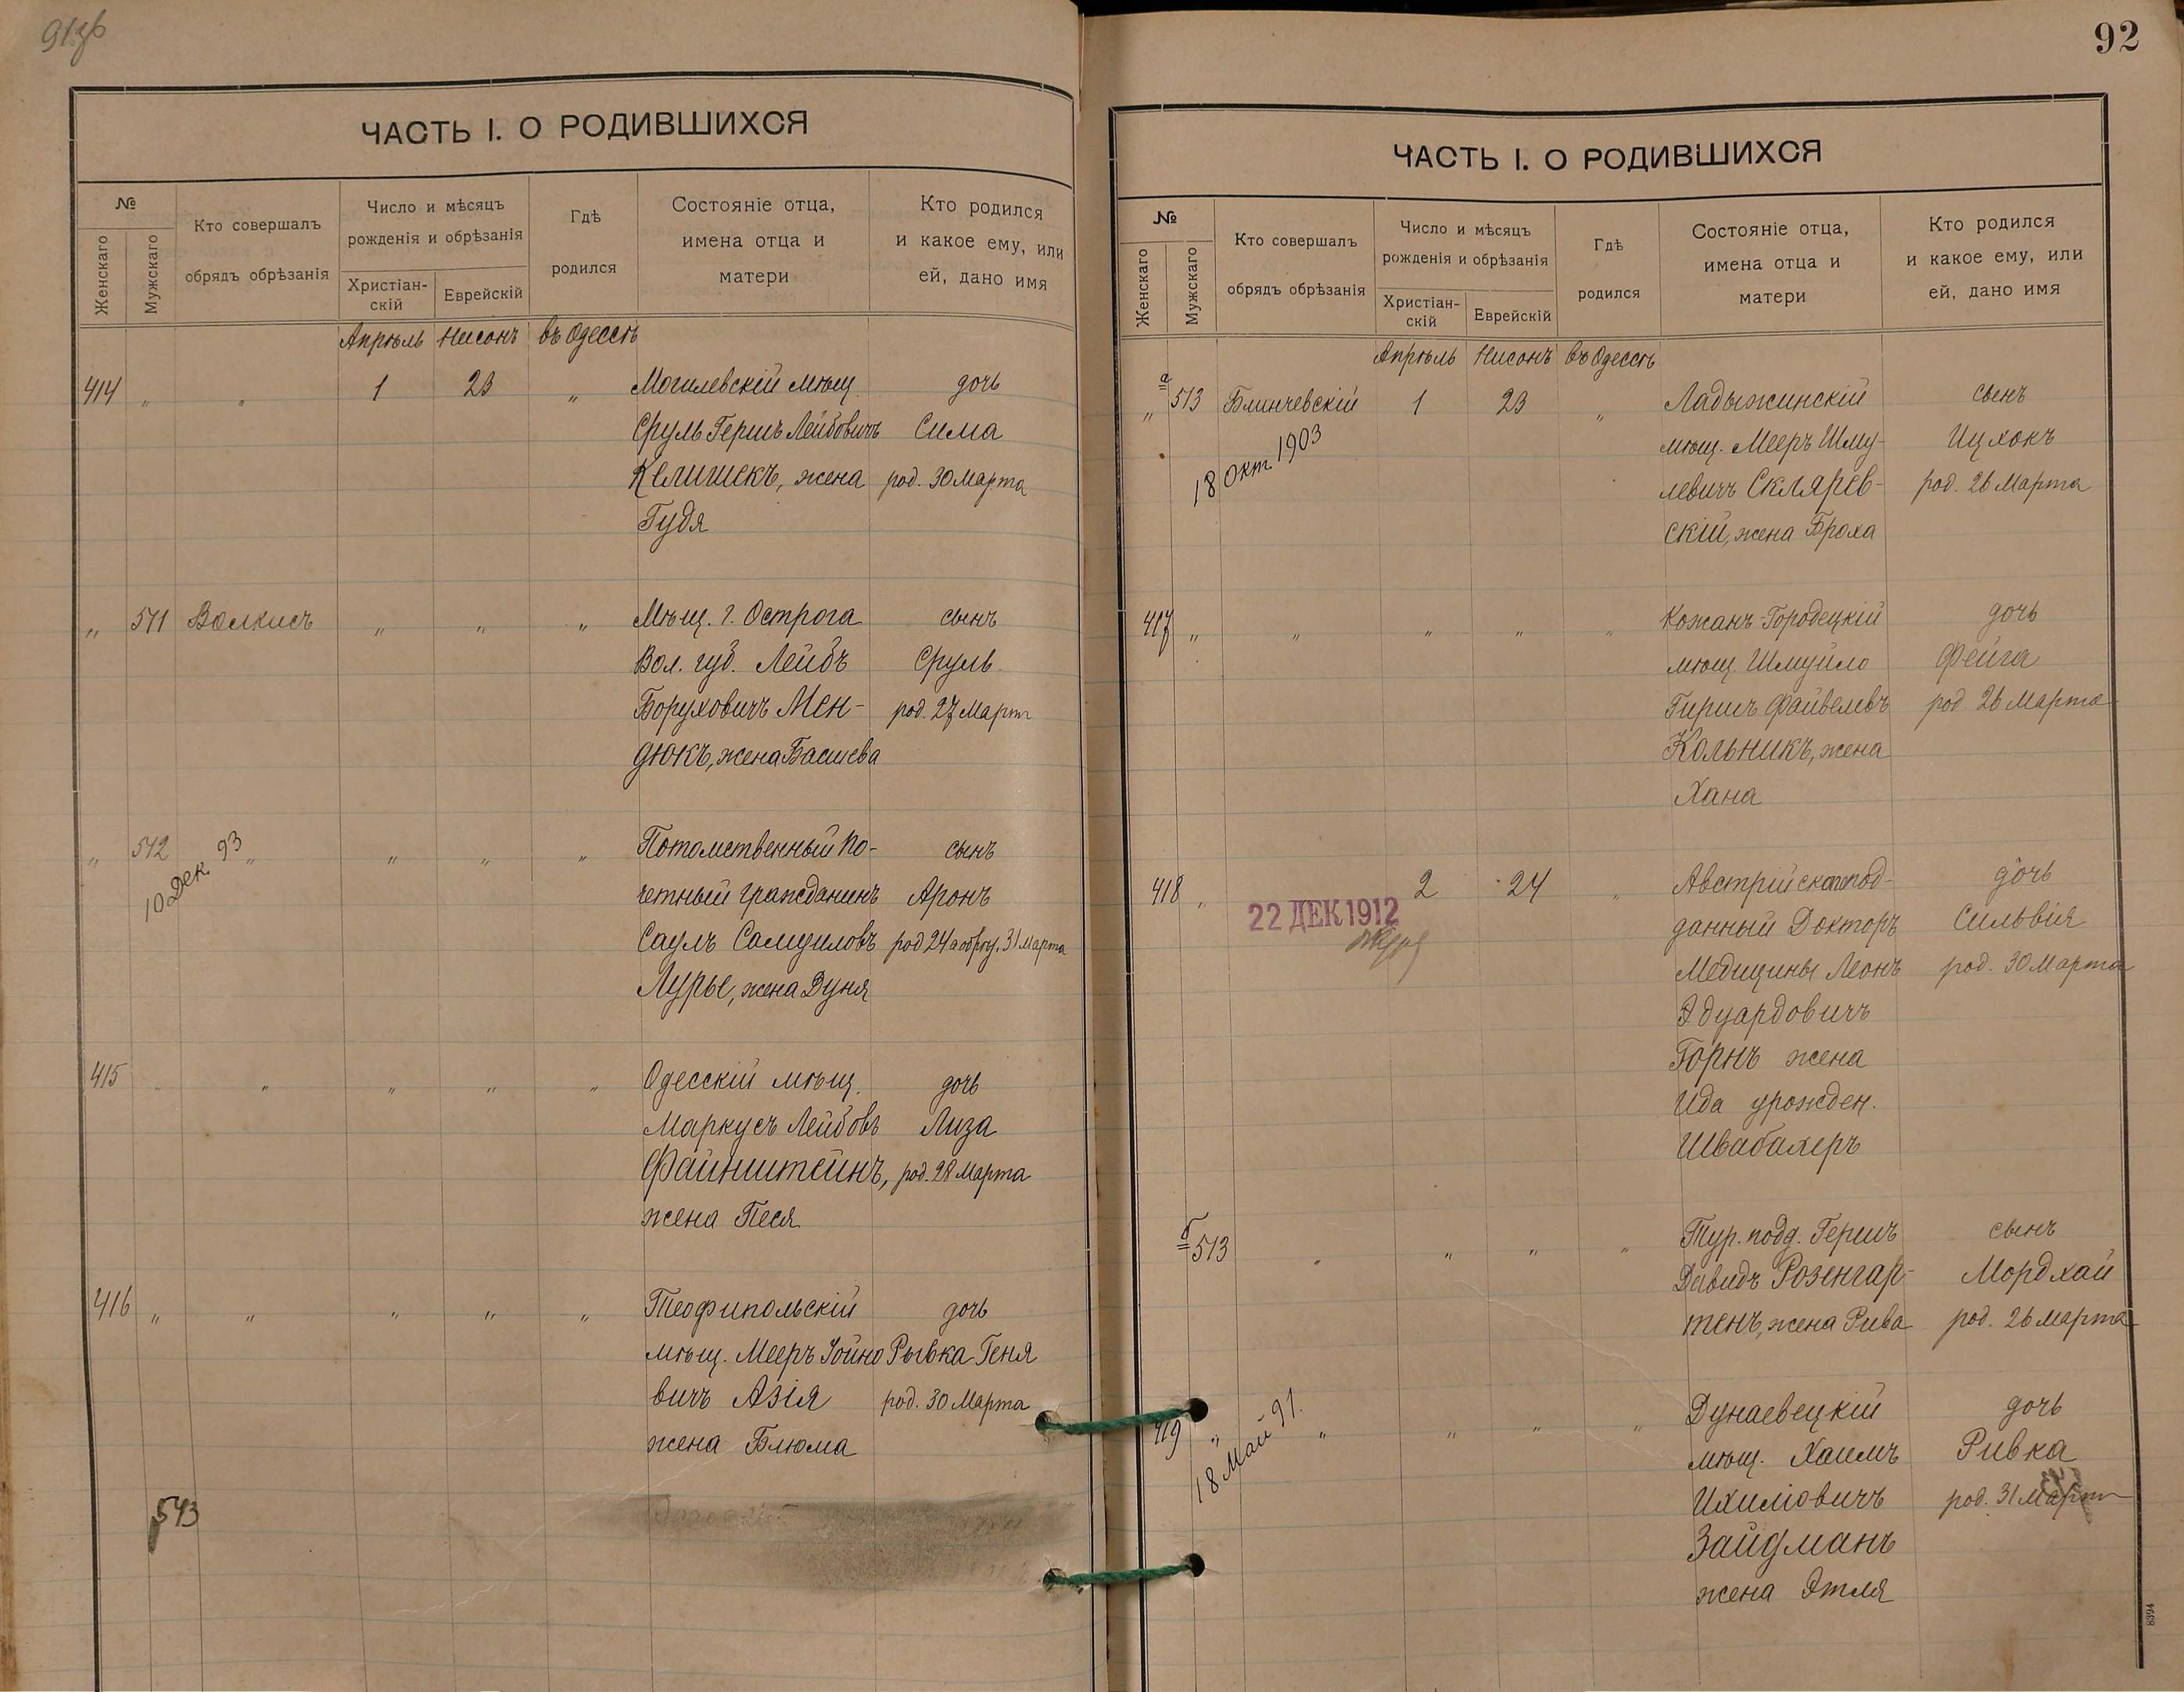 91 об
ЧАСТЬ I. О РОДИВШИХСЯ
№
Женскаго
Мужскаго
Кто совершалъ
обрядъ обрѣзанія
Число и мѣсяцъ
рожденія и обрѣзанія
Христіан-
скій
Еврейскій
Гдѣ
родился
Состояніе отца,
имена отца и
матери
Кто родился
и какое ему, или
ей, дано имя
Апрѣль Нисонъ въ Одессѣ
414 „ „ 1 23 „ Могилевскій мѣщ. дочь
Сруль Гершъ Лейбовичъ Сима
Келишекъ, жена род. 30 Марта
Гудя
„ 511 Волкисъ „ „ „ Мѣщ. г. Острога сынъ
Вол. губ. Лейбъ Сруль
Боруховичъ Мен- род. 27 Март
дюкъ, жена Басшева
„ 512 „ „ „ „ Потомственный по- сынъ
10 Дек. 93
четный гражданинъ Аронъ
Саулъ Самуиловъ род 24 а обрѣз. 31 Марта
Лурье, жена Дуня
415 „ „ „ „ „ Одесскій мѣщ. дочь
Маркусъ Лейбовъ Лиза
Файнштейнъ, род. 28 Марта
жена Песя
416 „ „ „ „ „ Теофипольскій дочь
мѣщ. Мееръ Іойно Рывка Геня
вичъ Азія род. 30 Марта
жена Блюма
543
92
ЧАСТЬ I. О РОДИВШИХСЯ
№
Женскаго
Мужскаго
Кто совершалъ
обрядъ обрѣзанія
Число и мѣсяцъ
рожденія и обрѣзанія
Христіан-
скій
Еврейскій
Гдѣ
родился
Состояніе отца,
имена отца и
матери
Кто родился
и какое ему, или
ей, дано имя
Апрѣль Нисонъ въ Одессѣ
„ а 513 Блинчевскій 1 23 „ Ладыжинскій сынъ
18 Окт. 1903
мѣщ. Мееръ Шму- Ицхокъ
левичъ Скляров- род. 26 Марта
скій, жена Броха
417 „ „ „ „ „ Кожанъ-Городецкій дочь
мѣщ Шмуйло Фейга
Гиршъ Файвелевъ род. 26 Марта
Кольникъ, жена
Хана
418 „ 2 24 „ Австрійско под- дочь
22 ДЕК 1912
данный Докторъ Сильвія
Медицины Леонъ род. 30 Марта
Эдуардовичъ
Горнъ жена
Ида урожден.
Швабахеръ
б 513 „ „ „ „ Тур. подд. Гершъ сынъ
Давидъ Розенгар- Мордхай
тенъ, жена Рива род. 26 Марта
419 „ „ „ „ „ Дунаевецкій дочь
18 Май 91.
мѣщ. Хаимъ Ривка
Ихиліовичъ род. 31 Март
Зайдманъ
жена Этля
8394